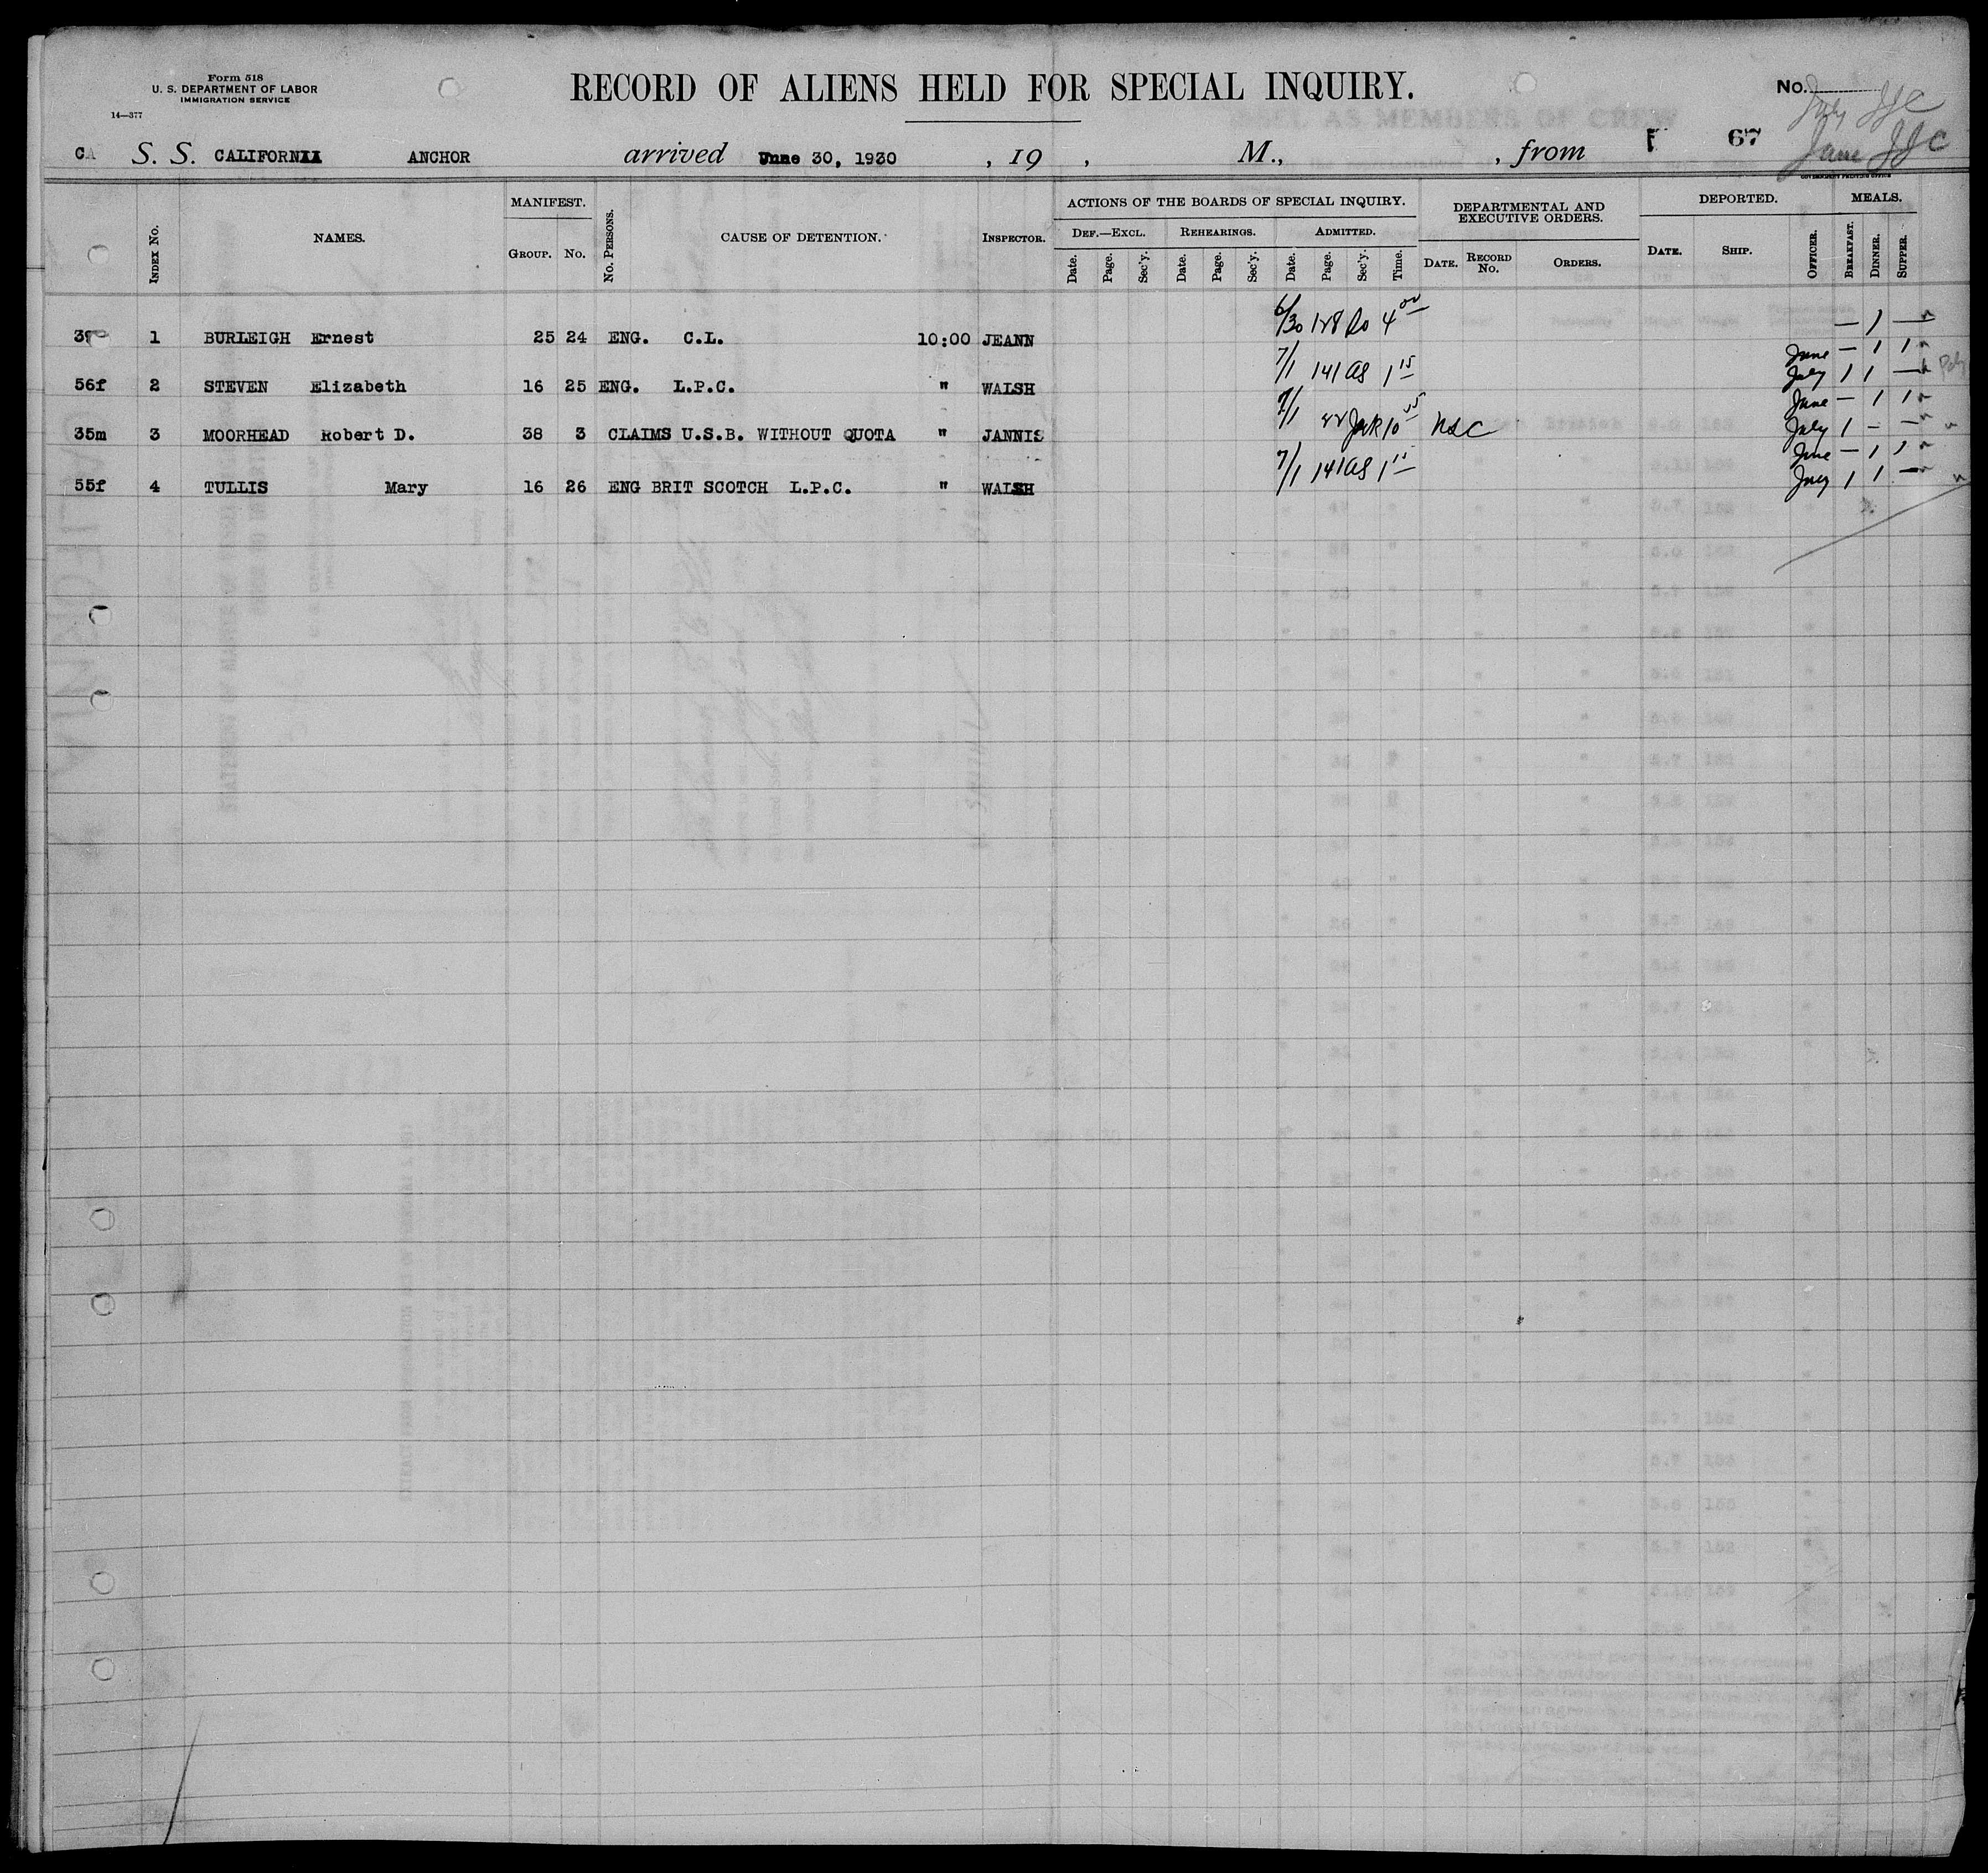 Form 518
U. S. DEPARTMENT OF LABOR
IMMIGRATION SERVICE
14—377
RECORD OF ALIENS HELD FOR SPECIAL INQUIRY.
No.
July JJC
June JJC
CA S. S. CALIFORNIA ANCHOR arrived June 30, 1930 , 19 , M., , from F 67
GOVERNMENT PRINTING OFFICE
INDEX No. NAMES. MANIFEST. GROUP. No. No. PERSONS. CAUSE OF DETENTION. INSPECTOR.
ACTIONS OF THE BOARDS OF SPECIAL INQUIRY.
DEF.—EXCL. Date. Page. Sec'y. REHEARINGS. Date. Page. Sec'y. ADMITTED. Date. Page. Sec'y. Time.
DEPARTMENTAL AND EXECUTIVE ORDERS. DATE. RECORD No. ORDERS.
DEPORTED. DATE. SHIP. OFFICER.
MEALS. BREAKFAST. DINNER. SUPPER.
1 BURLEIGH Ernest 25 24 ENG. C.L. 10:00 JEANN 6/30 128 4 00 — 1 —
56f 2 STEVEN Elizabeth 16 25 ENG. L.P.C. " WALSH 7/1 141 as 1 15 June — 1 1 July 1 1 —
35m 3 MOORHEAD Robert D. 38 3 CLAIMS U.S.B. WITHOUT QUOTA " JANNIS 7/1 10 55 June — 1 1 July 1 – –
55f 4 TULLIS Mary 16 26 ENG BRIT SCOTCH L.P.C. " WALSH 7/1 141 as 1 15 June — 1 1 July 1 1 —